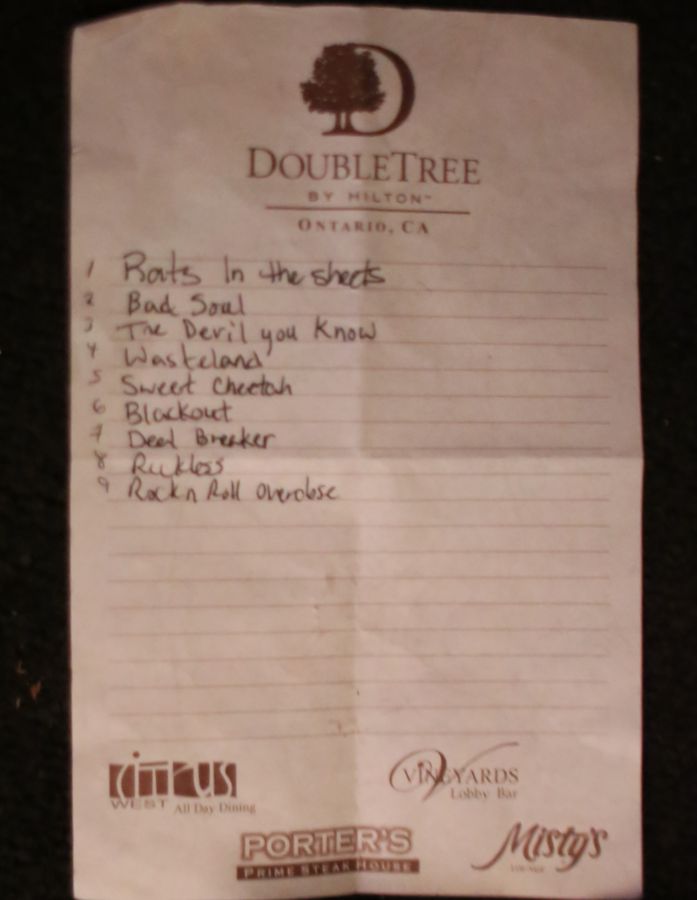 D
DOUBLETREE
BY HILTON™
ONTARIO, CA
1 Rats In the sheets
2 Bad Soul
3 The Devil you Know
4 Wasteland
5 Sweet Cheetah
6 Blackout
7 Deal Breaker
8 Reckless
9 Rock n Roll Overdose
CITRUS
WEST All Day Dining
VINEYARDS
Lobby Bar
PORTER'S
PRIME STEAK HOUSE
Misty's
LOUNGE